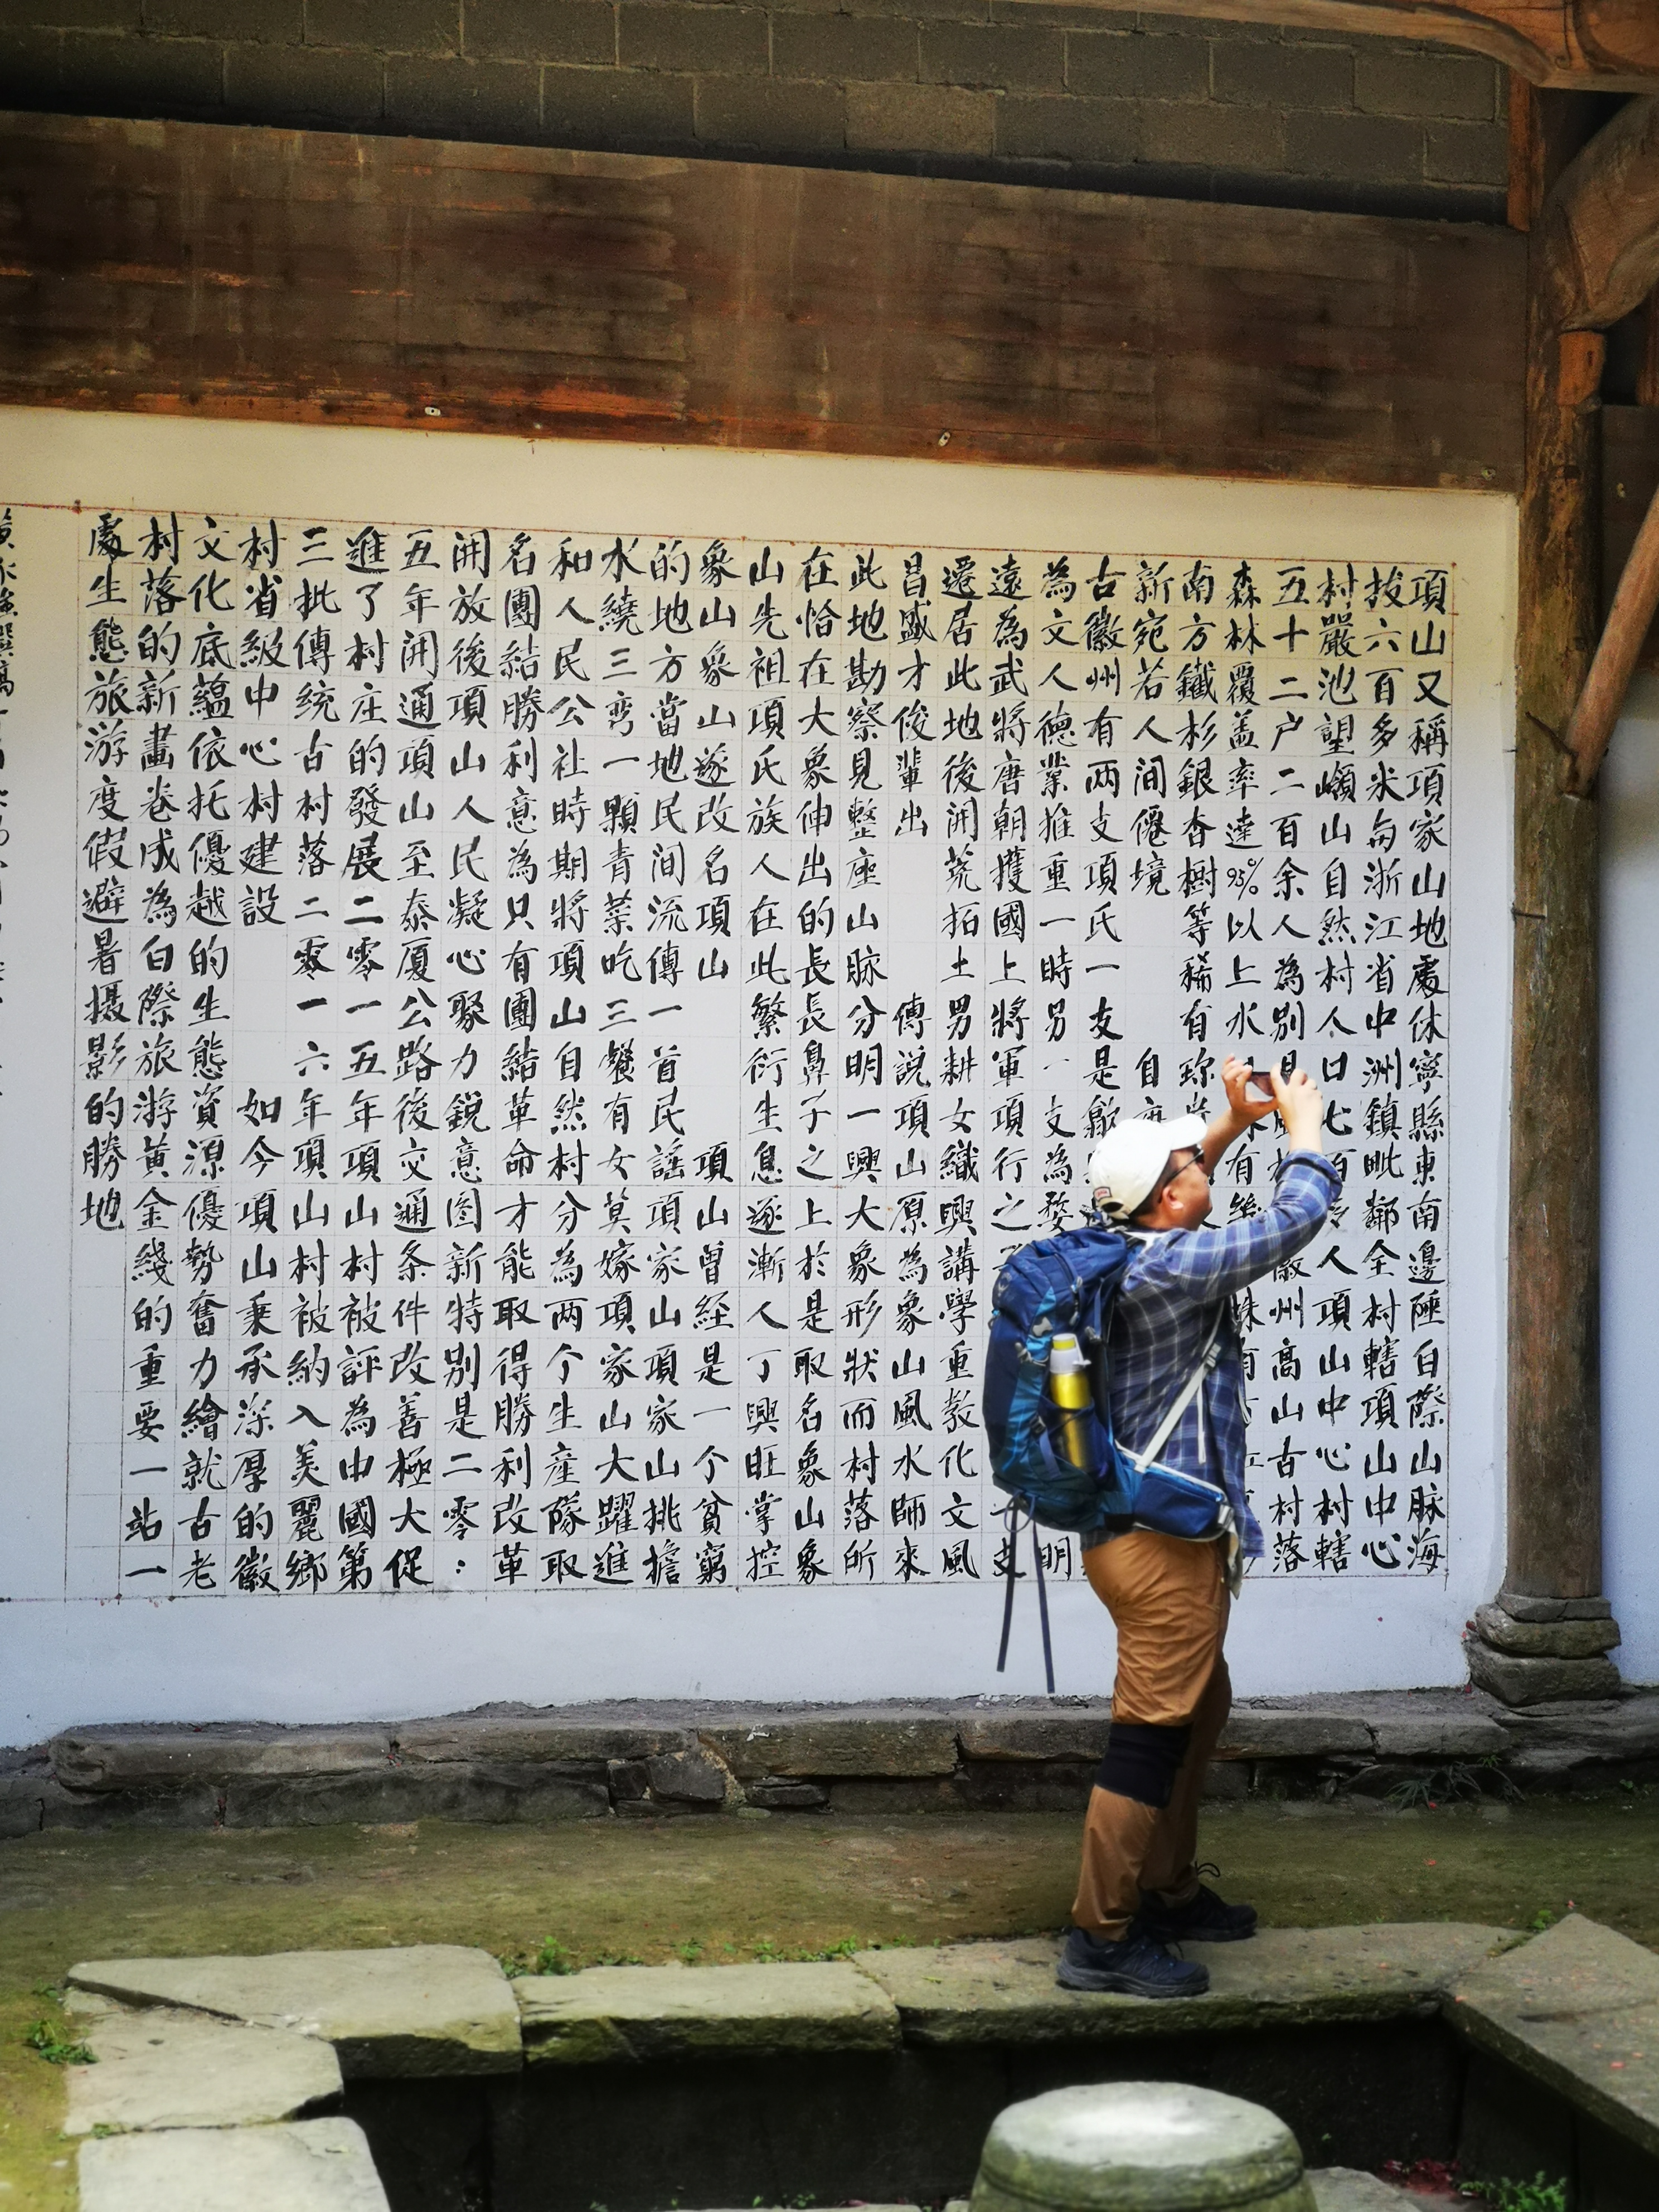 項山又稱項家山地處休寧縣東南邊陲白際山脉海
拔六百多米與浙江省中洲鎮毗鄰全村轄項山中心
村嚴池望嶺山自然村人口七百人項山中心村轄
五十二户二百余人為別徽州高山古村落
森林覆盖率達95%以上水有
南方鐵杉銀杏樹等稀有珍
新宛若人間僊境 自
古徽州有两支項氏一支是歙
為文人德業推重一時另一支為婺明
遠為武將唐朝獲國上將軍項行之支
遷居此地後開荒拓土男耕女織興講學重教化文風
昌盛才俊輩出 傳説項山原為象山風水師來
此地勘察見整座山脉分明一興大象形狀而村落所
在恰在大象伸出的長長鼻子之上於是取名象山象
山先祖項氏族人在此繁衍生息遂漸人丁興旺掌控
象山象山遂改名項山 項山曾经是一个貧窮
的地方當地民间流傳一首民謡項家山項家山挑擔
水繞三弯一顆青菜吃三餐有女莫嫁項家山大躍進
和人民公社時期將項山自然村分為两个生産隊取
名團結勝利意為只有團結革命才能取得勝利改革
開放後項山人民凝心聚力鋭意图新特别是二零:
五年開通項山至泰厦公路後交通条件改善極大促
進了村庄的發展二零一五年項山村被評為中國第
三批傳统古村落二零一六年項山村被納入美麗鄉
村省級中心村建設 如今項山秉承深厚的徽
文化底藴依托優越的生態資源優勢奮力繪就古老
村落的新畫卷成為白際旅游黄金綫的重要一站一
處生態旅游度假避暑摄影的勝地